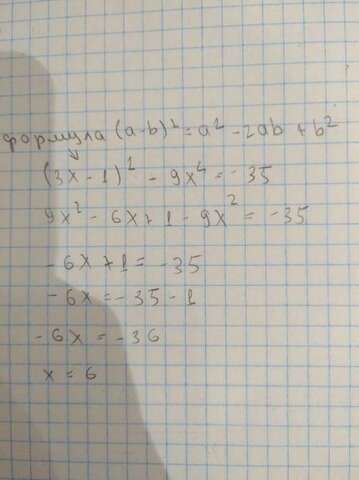 формула (a-b)² = a² - 2ab + b²
(3x - 1)² - 9x² = -35
9x² - 6x + 1 - 9x² = -35
-6x + 1 = -35
-6x = -35 - 1
-6x = -36
x = 6